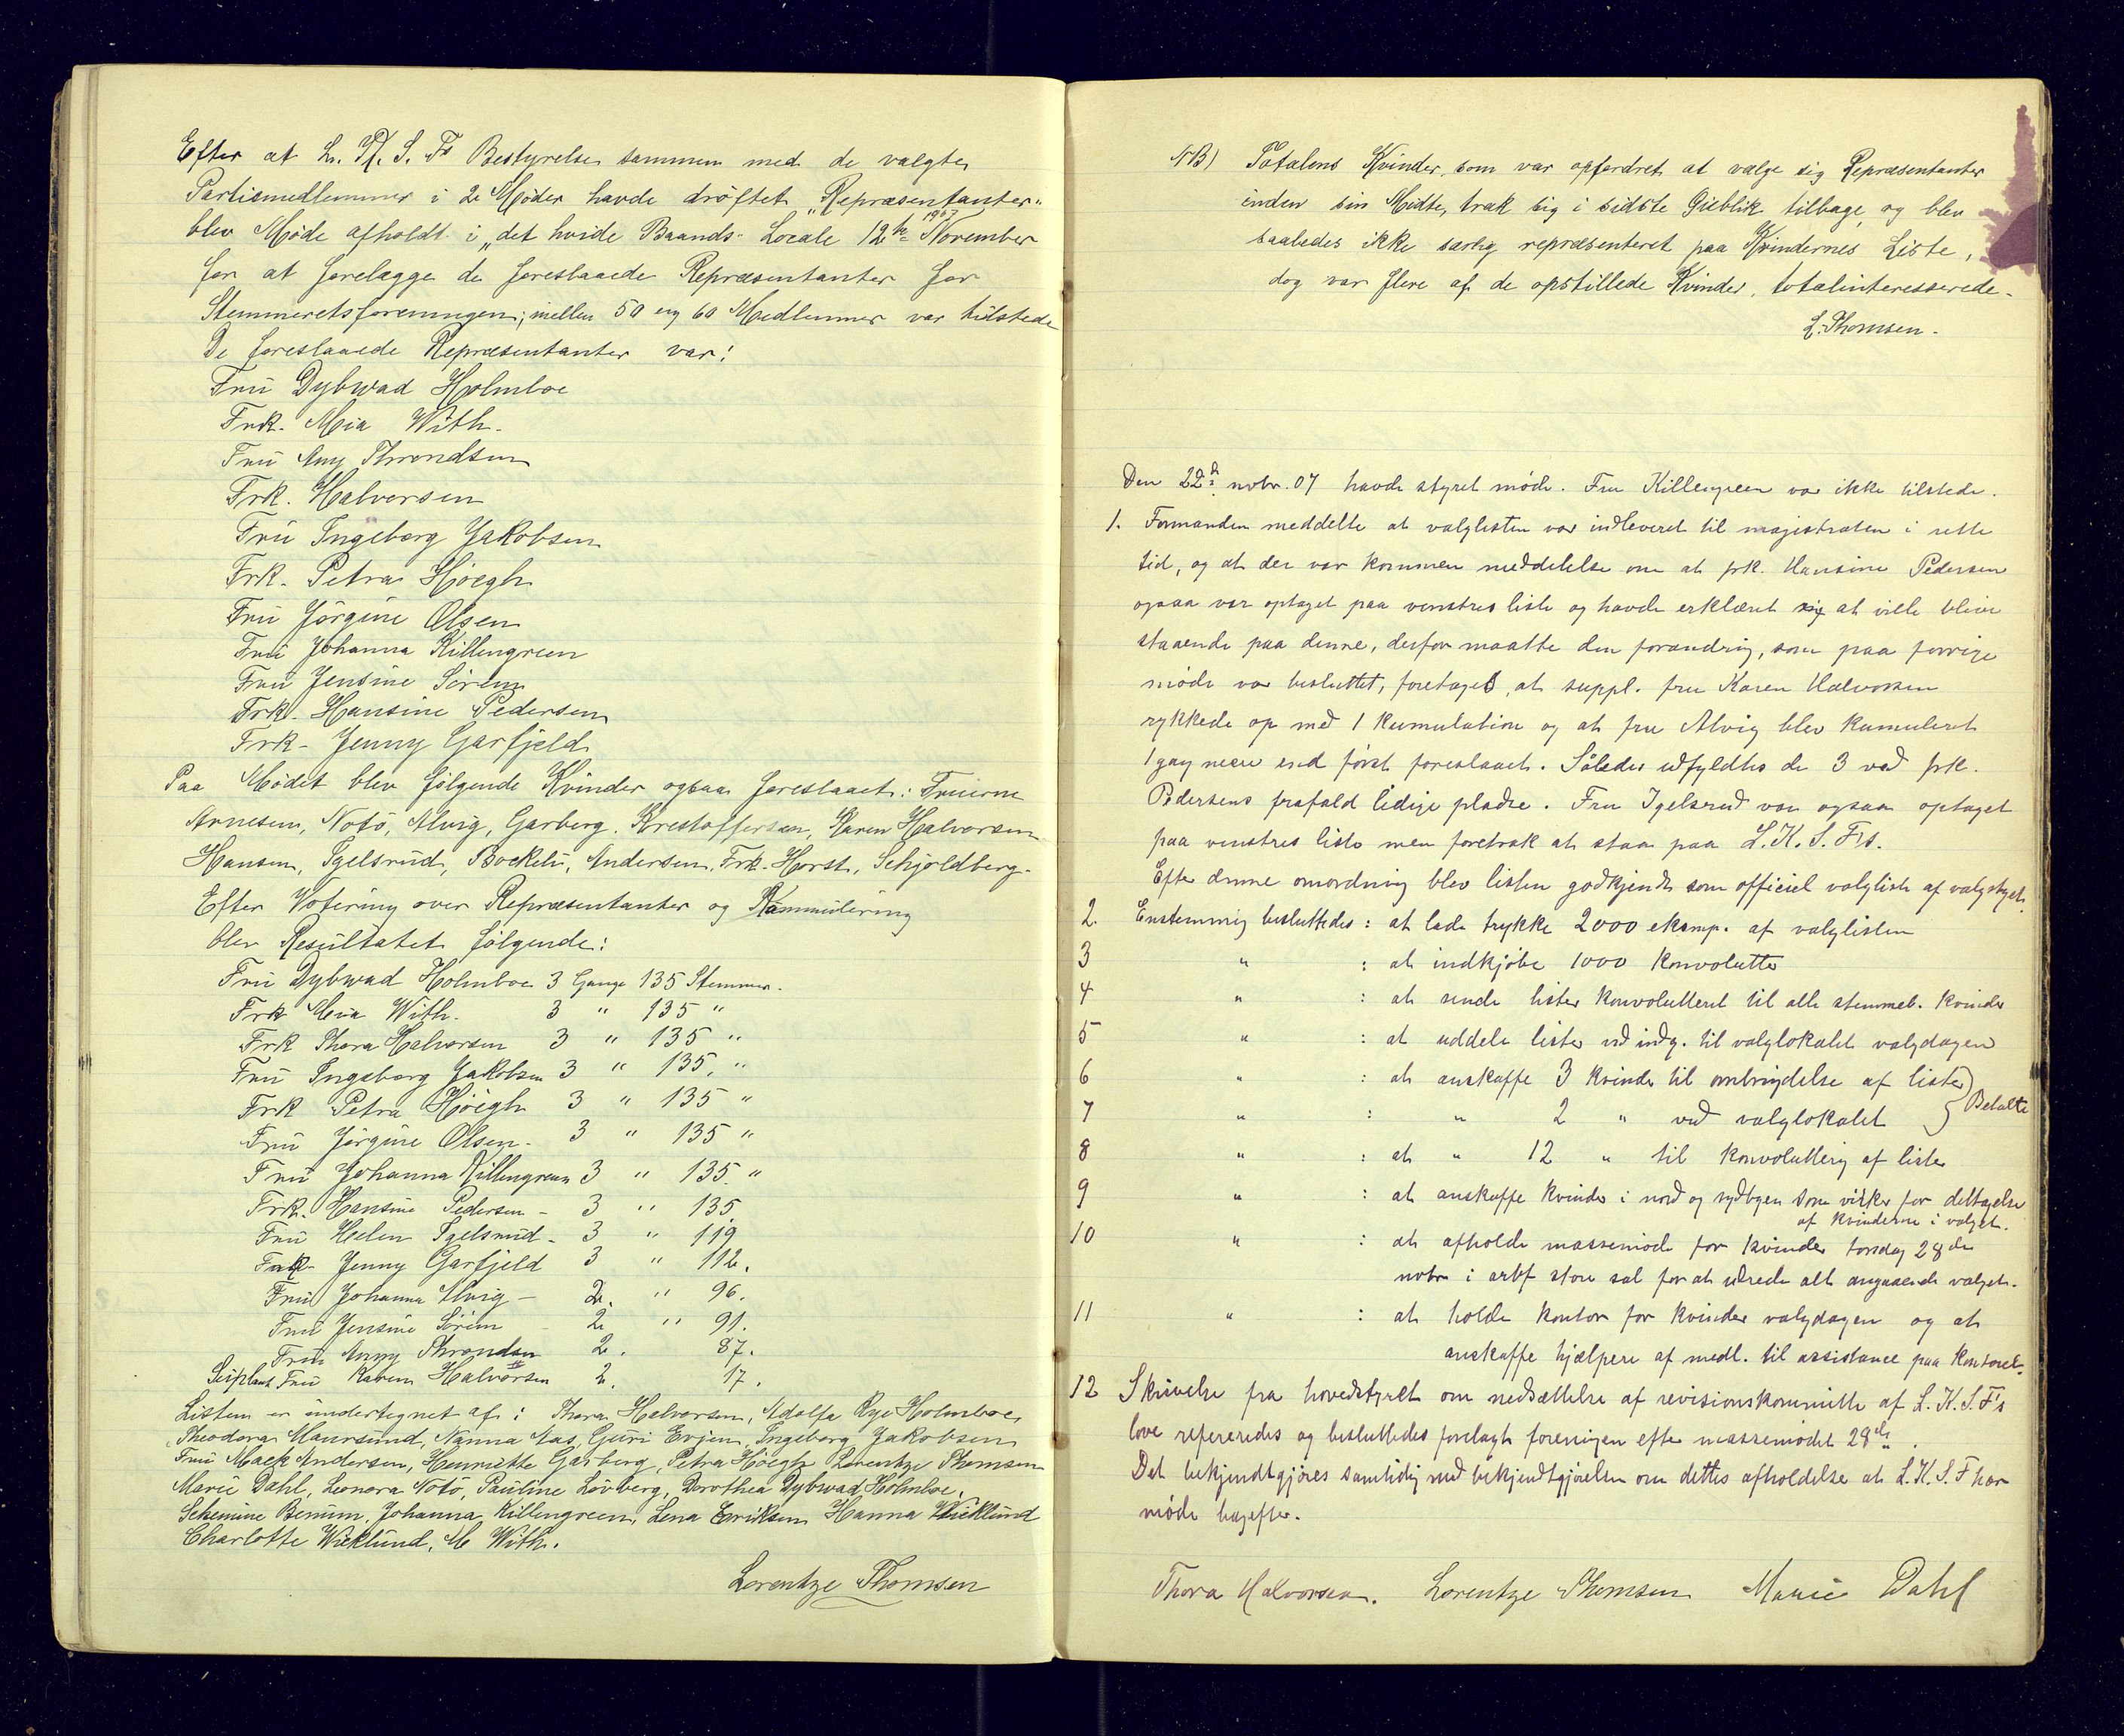 Efter at L. K. S. Fs Bestyrelse sammen med de valgte
Partismedlemmer i 2 Møder havde drøftet „Repræsentanter"
blev Møde afholdt i „det hvide Baands" Locale 12te November 1907
for at forelægge de foreslaaede Repræsentanter for
Stemmeretsforeningen; mellem 50 og 60 Medlemmer var tilstede
De foreslaaede Repræsentanter var:
Fru Dybwad Holmboe
Frk. Mia With.
Fru Any Throndsen
Frk. Halvorsen
Fru Ingeborg Jakobsen
Frk. Petra Hjöegh
Fru Jörgine Olsen
Fru Johanna Killengreen
Fru Jensine Sörem
Frk. Hansine Pedersen
Frk. Jenny Garfjeld
Paa Mödet blev fölgende Kvinder ogsaa foreslaaet: Fruerne
Arnesen, Notö, Alvig, Garberg, Krestoffersen, Karen Halvorsen
Hansen, Igelsrud, Bockelu, Andersen, Frk. Horst, Schjoldberg.
Efter Votering over Repræsentanter og Kammulering
blev Resultatet fölgende:
Fru Dybwad Holmboe 3 Gange 135 Stemmer.
Frk Mia With. 3 " 135 "
Frk Thora Halvorsen 3 " 135 "
Fru Ingeborg Jakobsen 3 " 135. "
Frk Petra Hjöegh 3 " 135 "
Fru Jörgine Olsen. 3 " 135 "
Fru Johanna Killengreen 3 " 135. "
Frk. Hansine Pedersen - 3 " 135
Fru Helen Igelsrud - 3 " 119
Frk Jenny Garfjeld 3 " 112.
Fru Johanna Alvig - 2. " 96.
Fru Jensine Sörem - 2 " 91.
Fru Anny Throndsen 2. 87.
Suplant Fru Karen Halvorsen 2. 17.
Listen er undertegnet af: Thora Halvorsen, Adolfa Rye Holmboe,
Theodora Maursund, Nanna Aas, Guri Evjen, Ingeborg Jakobsen
Fru Mack Andersen, Henriette Garberg, Petra Höegh Lorentze Thomsen
Marie Dahl, Leonora Notö, Pauline Lövberg, Dorothea Dybwad Holmboe.
Benum, Johanna Killengreen, Lena Eriksen Hanna Wicklund
Charlotte Wicklund, M With.
Lorentze Thomsen
NB) Totalens Kvinder, som var opfordret at vælge sig Repræsentanter
inden sin Midte, trak sig i sidste Øieblik tilbage, og blev
saaledes ikke særlig repræsenteret paa Kvindernes Liste,
dog var flere af de opstillede Kvinder, totalinteresserede.
L. Thomsen.
Den 22d novbr. 07 havde styret møde. Fru Killengreen var ikke tilstede.
1. Formanden meddelte at valglisten var indleveret til magistraten i rette
tid, og at der var kommen meddelelse om at frk. Hansine Pedersen
ogsaa var optaget paa venstres liste og havde erklæret sig at ville blive
staaende paa denne, derfor maatte den forandring, som paa forrige
møde var besluttet, foretages, at suppl. fru Karen Halvorsen
rykkede op med 1 kumulation og at fru Alvig blev kumuleret
1 gang mere end først foreslaaet. Således udfyldtes de 3 ved frk.
Pedersens frafald ledige pladse. Fru Igelsrud var ogsaa optaget
paa venstres liste men foretrak at staa paa L. K. S. Fs.
Efter denne omordning blev listen godkjendt som officiel valgliste af valgstyret.
2. Enstemmig besluttedes: at lade trykke 2000 eksmp. af valglisten
3 " : at indkjøbe 1000 konvolutter
4 " : at sende lister konvolutteret til alle stemmeb. kvinder
5 " : at uddele lister ved indg. til valglokalet valgdagen
6 " : at anskaffe 3 kvinder til ombringelse af lister } Betalte
7 " : " 2 " ved valglokalet
8 " : at " 12 " til konvoluttering af lister
9 " : at anskaffe kvinder i nord og sydbyen som virker for deltagelse
af kvinderne i valget.
10 " : at afholde massemøde for kvinder torsdag 28de
novbr i arbf store sal for at udrede alt angaaende valget.
11 " : at holde kontor for kvinder valgdagen og at
anskaffe hjælpere af medl. til assistance paa kontoret.
12 Skrivelse fra hovedstyret om nedsættelse af revisionskommitte af L. K. S. F's
love refereredes og besluttedes forelagt foreningen efter massemødet 28de.
Det bekjendtgjøres samtidig med bekjendtgjørelsen om dettes afholdelse at L. K. S. F har
møde bagefter.
Thora Halvorsen. Lorentze Thomsen Marie Dahl